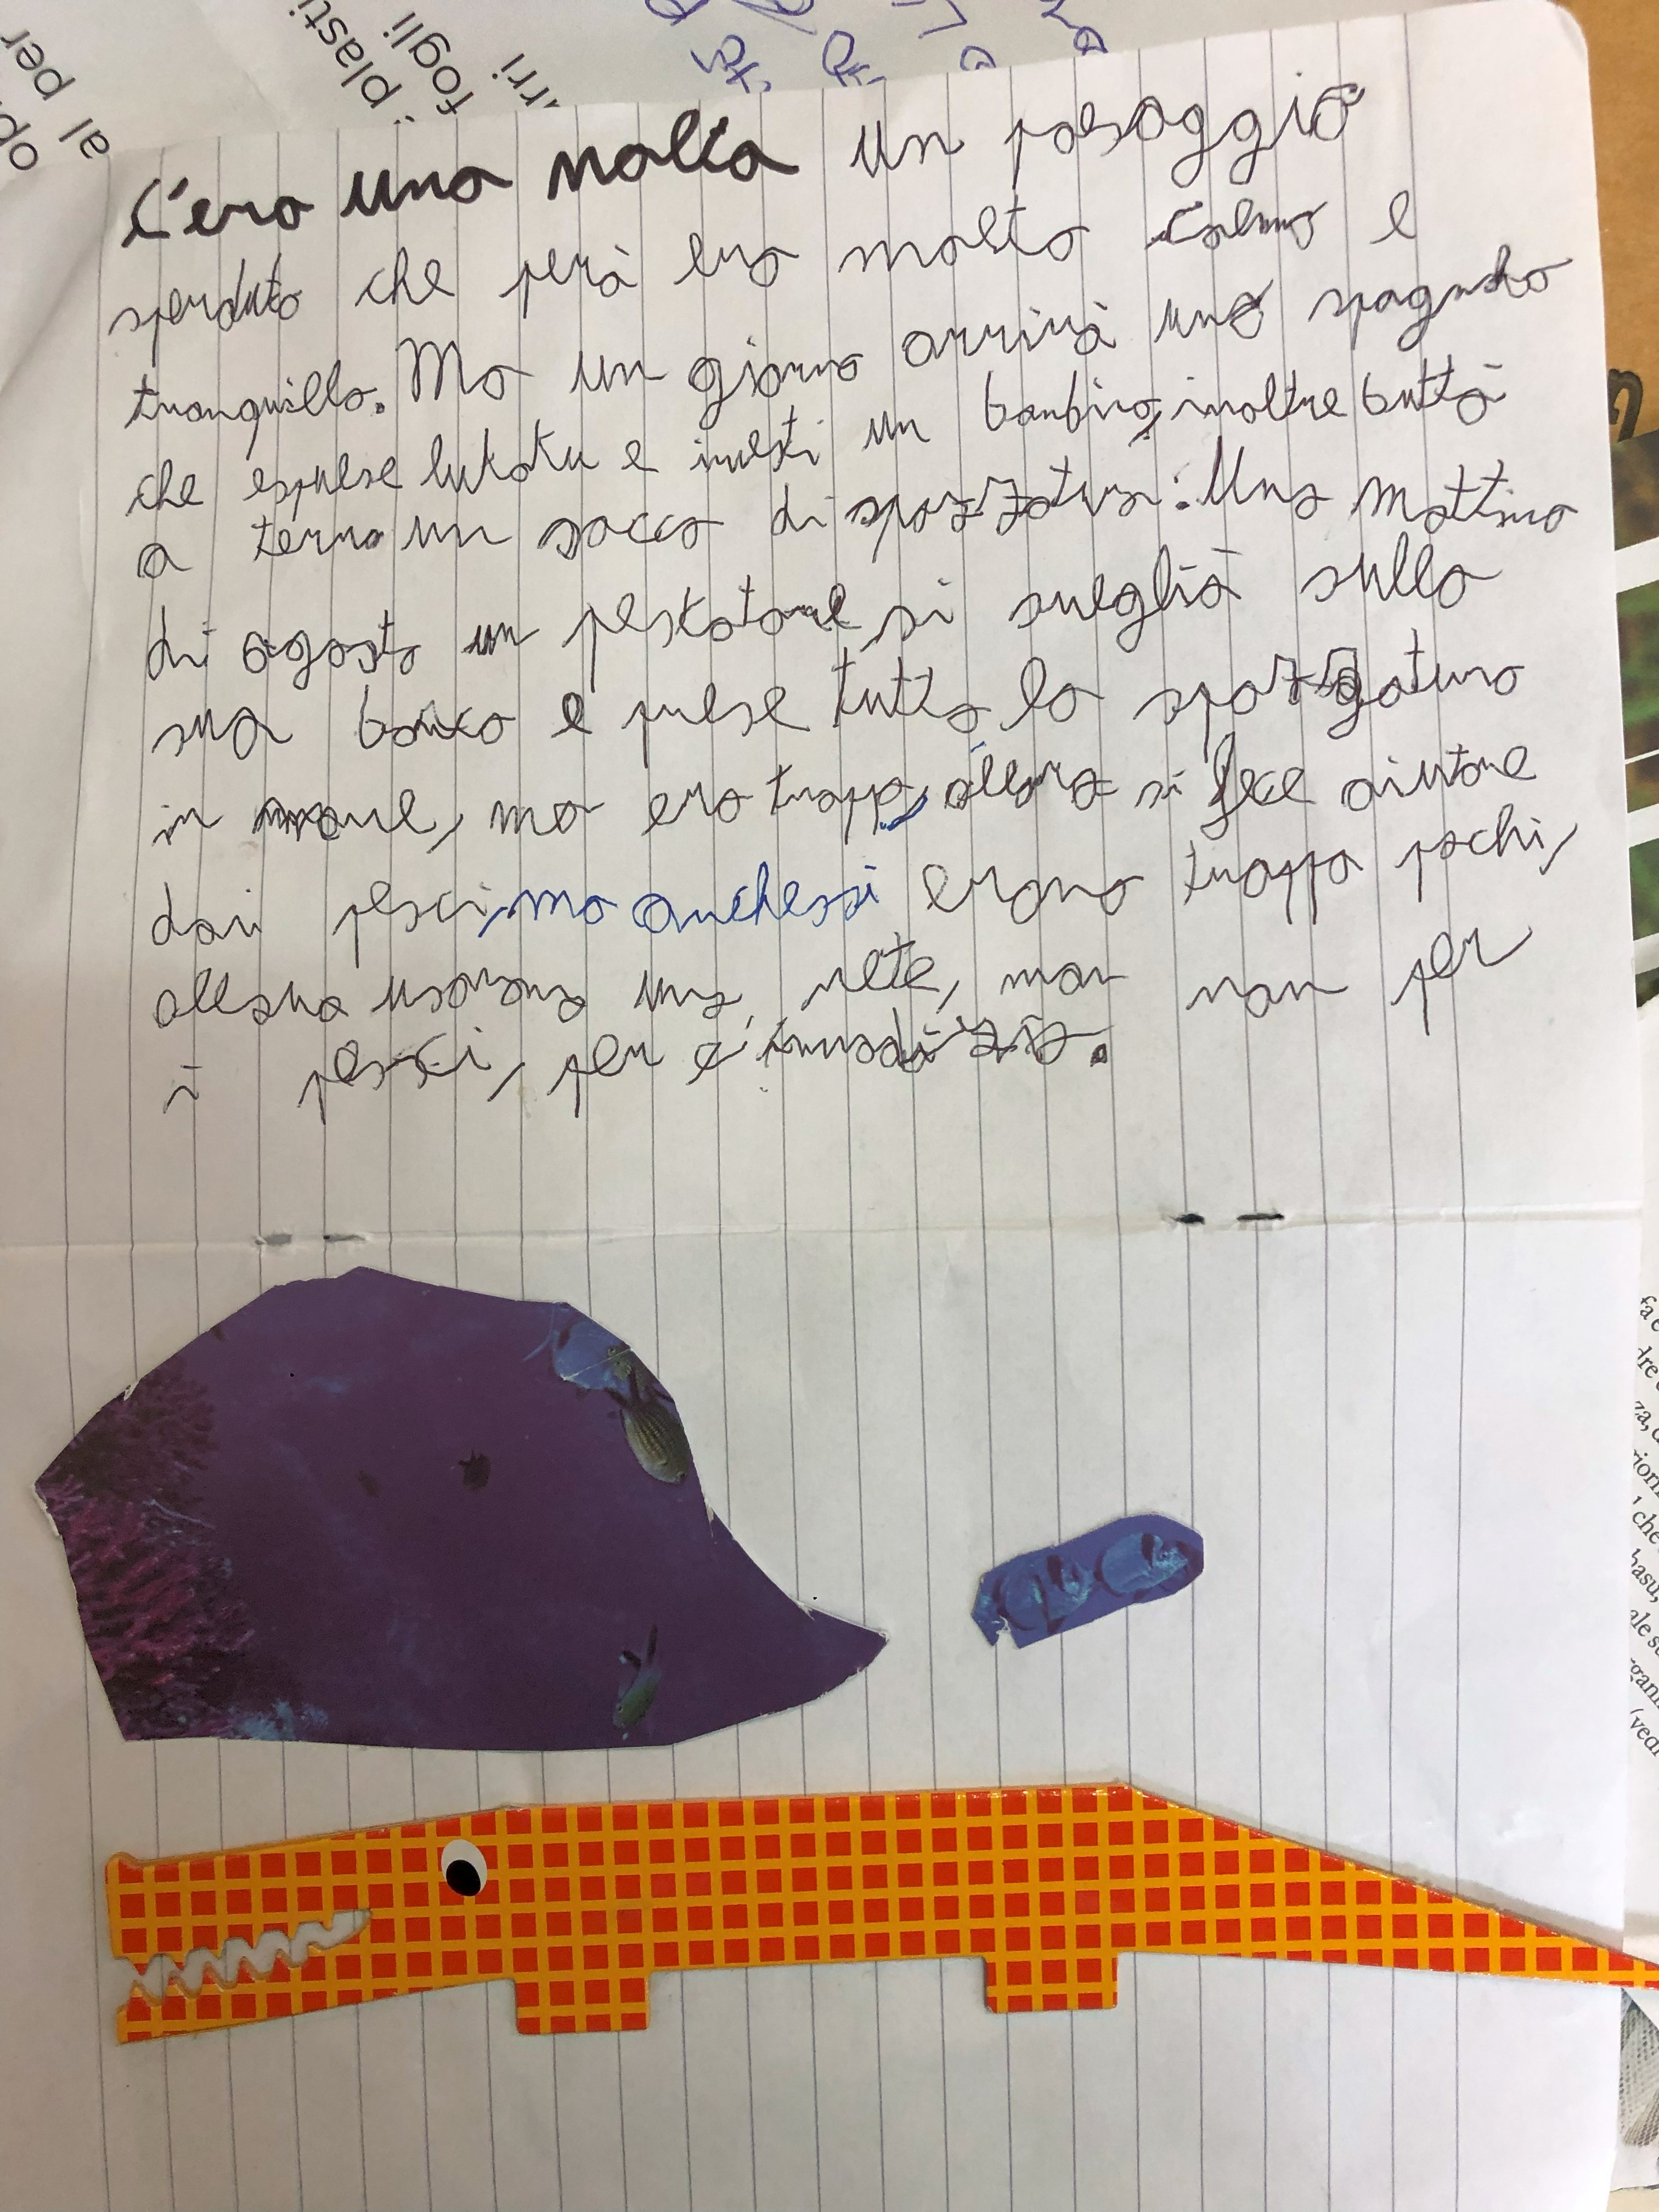 C'era una nolta un pasaggio
sperduto che però era molto calmo e
tranquillo. Ma un giorno arrivò uno spagnolo
che espulse lukaku e investì un bambino, inoltre buttò
a terra un sacco di spazzatura. Una mattina
di agosto un peskatore si svegliò sulla
sua barca e prese tutta la spazzatura
in mare, ma era troppa, allora si fece aiutare
dai pesci, ma anchessi erano troppo pochi,
allora usarono una rete, man non per
i pesci, per l'inmodizia.
al per
i plasti
fogli
rri